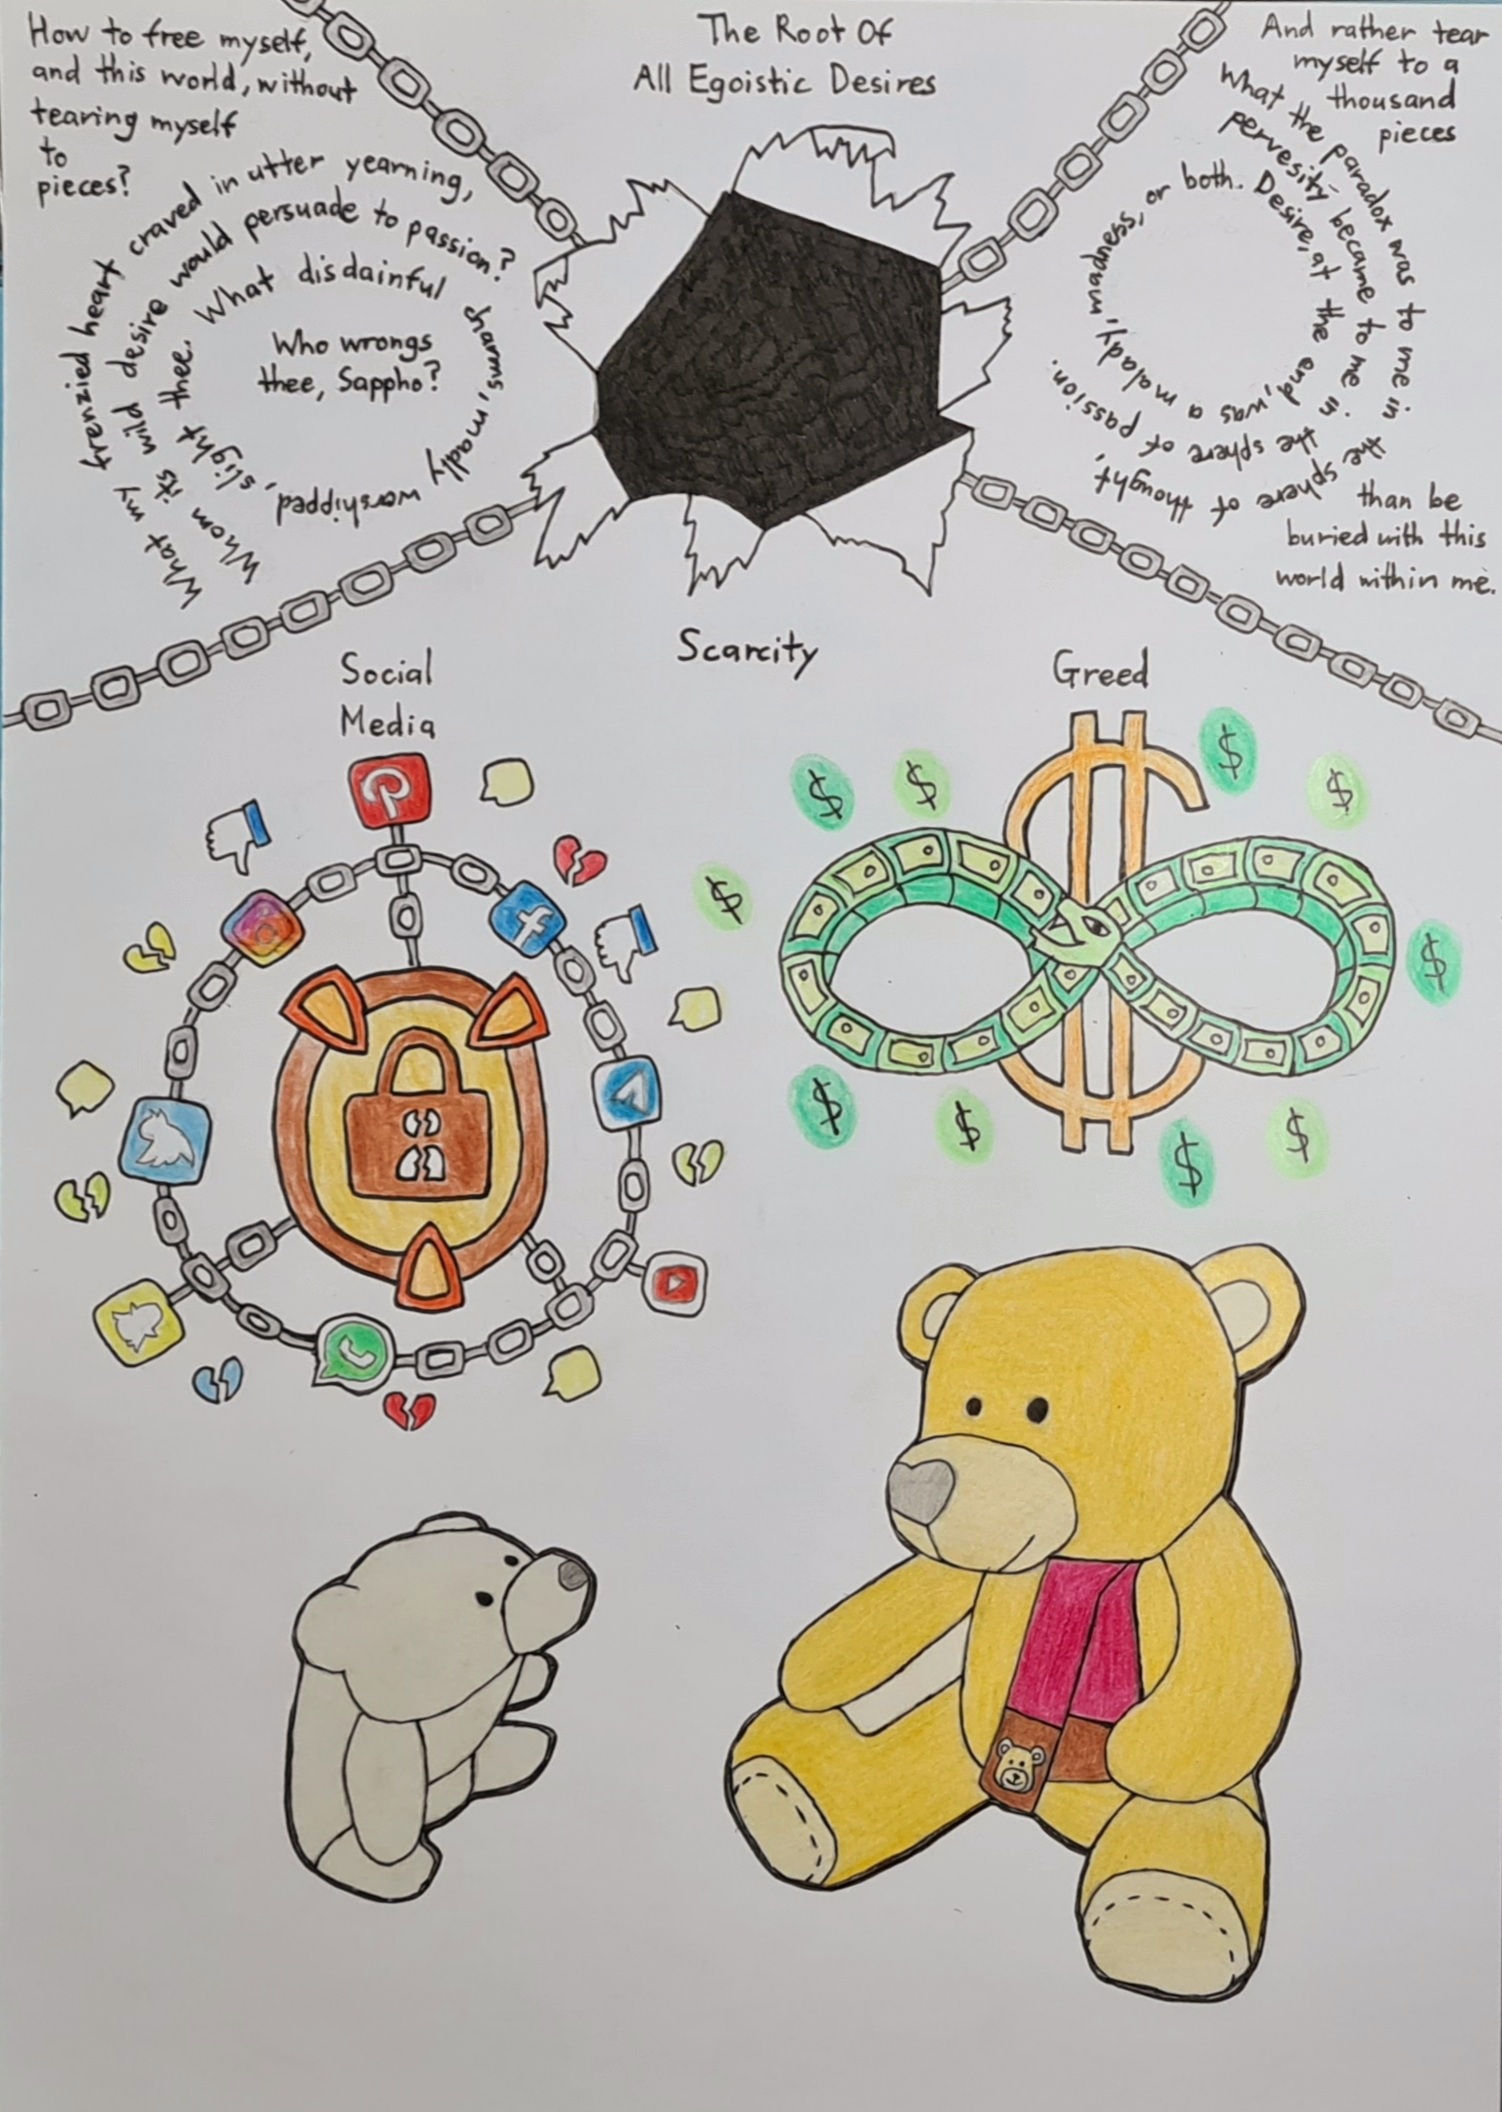 How to free myself,
and this world, without
tearing myself
to
pieces?
What my frenzied heart craved in utter yearning,
Whom its wild desire would persuade to passion?
What disdainful charms, madly worshipped, slight thee.
Who wrongs
thee, Sappho?
The Root Of
All Egoistic Desires
And rather tear
myself to a
thousand
pieces
What the paradox was to me in the sphere of thought,
pervesity became to me in the sphere of passion.
Desire, at the end, was a malady, madness, or both.
than be
buried with this
world within me.
Scarcity
Social
Media
Greed